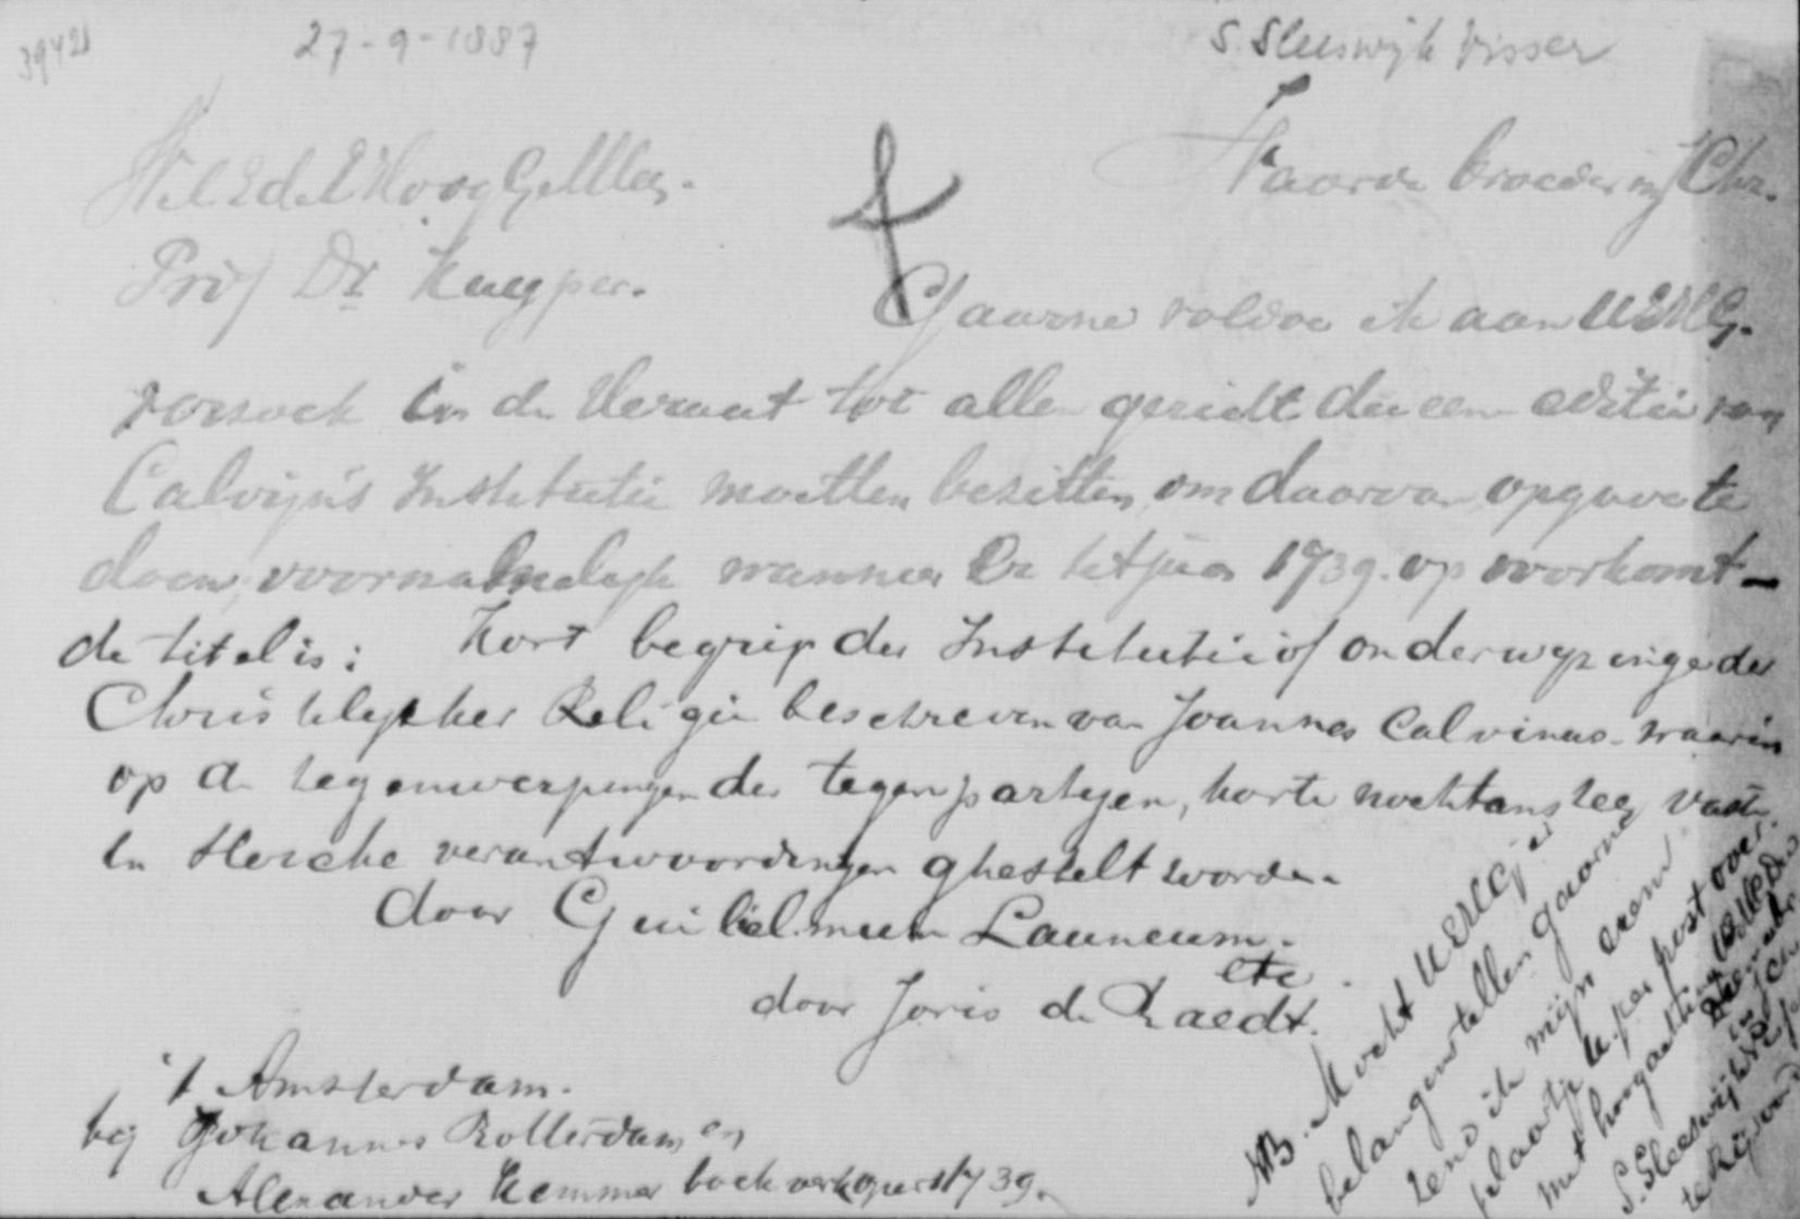 39421
27-9-1887
S. Sleeswijk Visser
WelEdelHoogGelLeer.
Prof Dr Kuyper.
Waarde broeder in Chr.
Gaarne voldoe ik aan UEHG.
verzoek in de Heraut tot allen gericht die een editie van
Calvijn's Institutie mochten bezitten, om daarvan opgave te
doen, voornamelijk wanneer er het jaar 1739. op voorkomt -
de titel is: Kort begrip der Institutie of onderwyzinge der
Christelyker Religie beschreven van Joannes Calvinus - waarin
op de tegenwerpingen der tegenpartyen, korte nochtans zeer vaste
en sterche verantwoordingen ghestelt worden.
door Guilielmum Launeum.
etc
door Joris de Raedt.
't Amsterdam.
bij Johannes Rotterdam en
Alexander Kemmer boekverkopers 1739.
NB. Mocht UEHG er
belang in stellen gaarne
zend ik mijn exem
plaartje u per post over.
met hoogachting
S. Sleeswijk